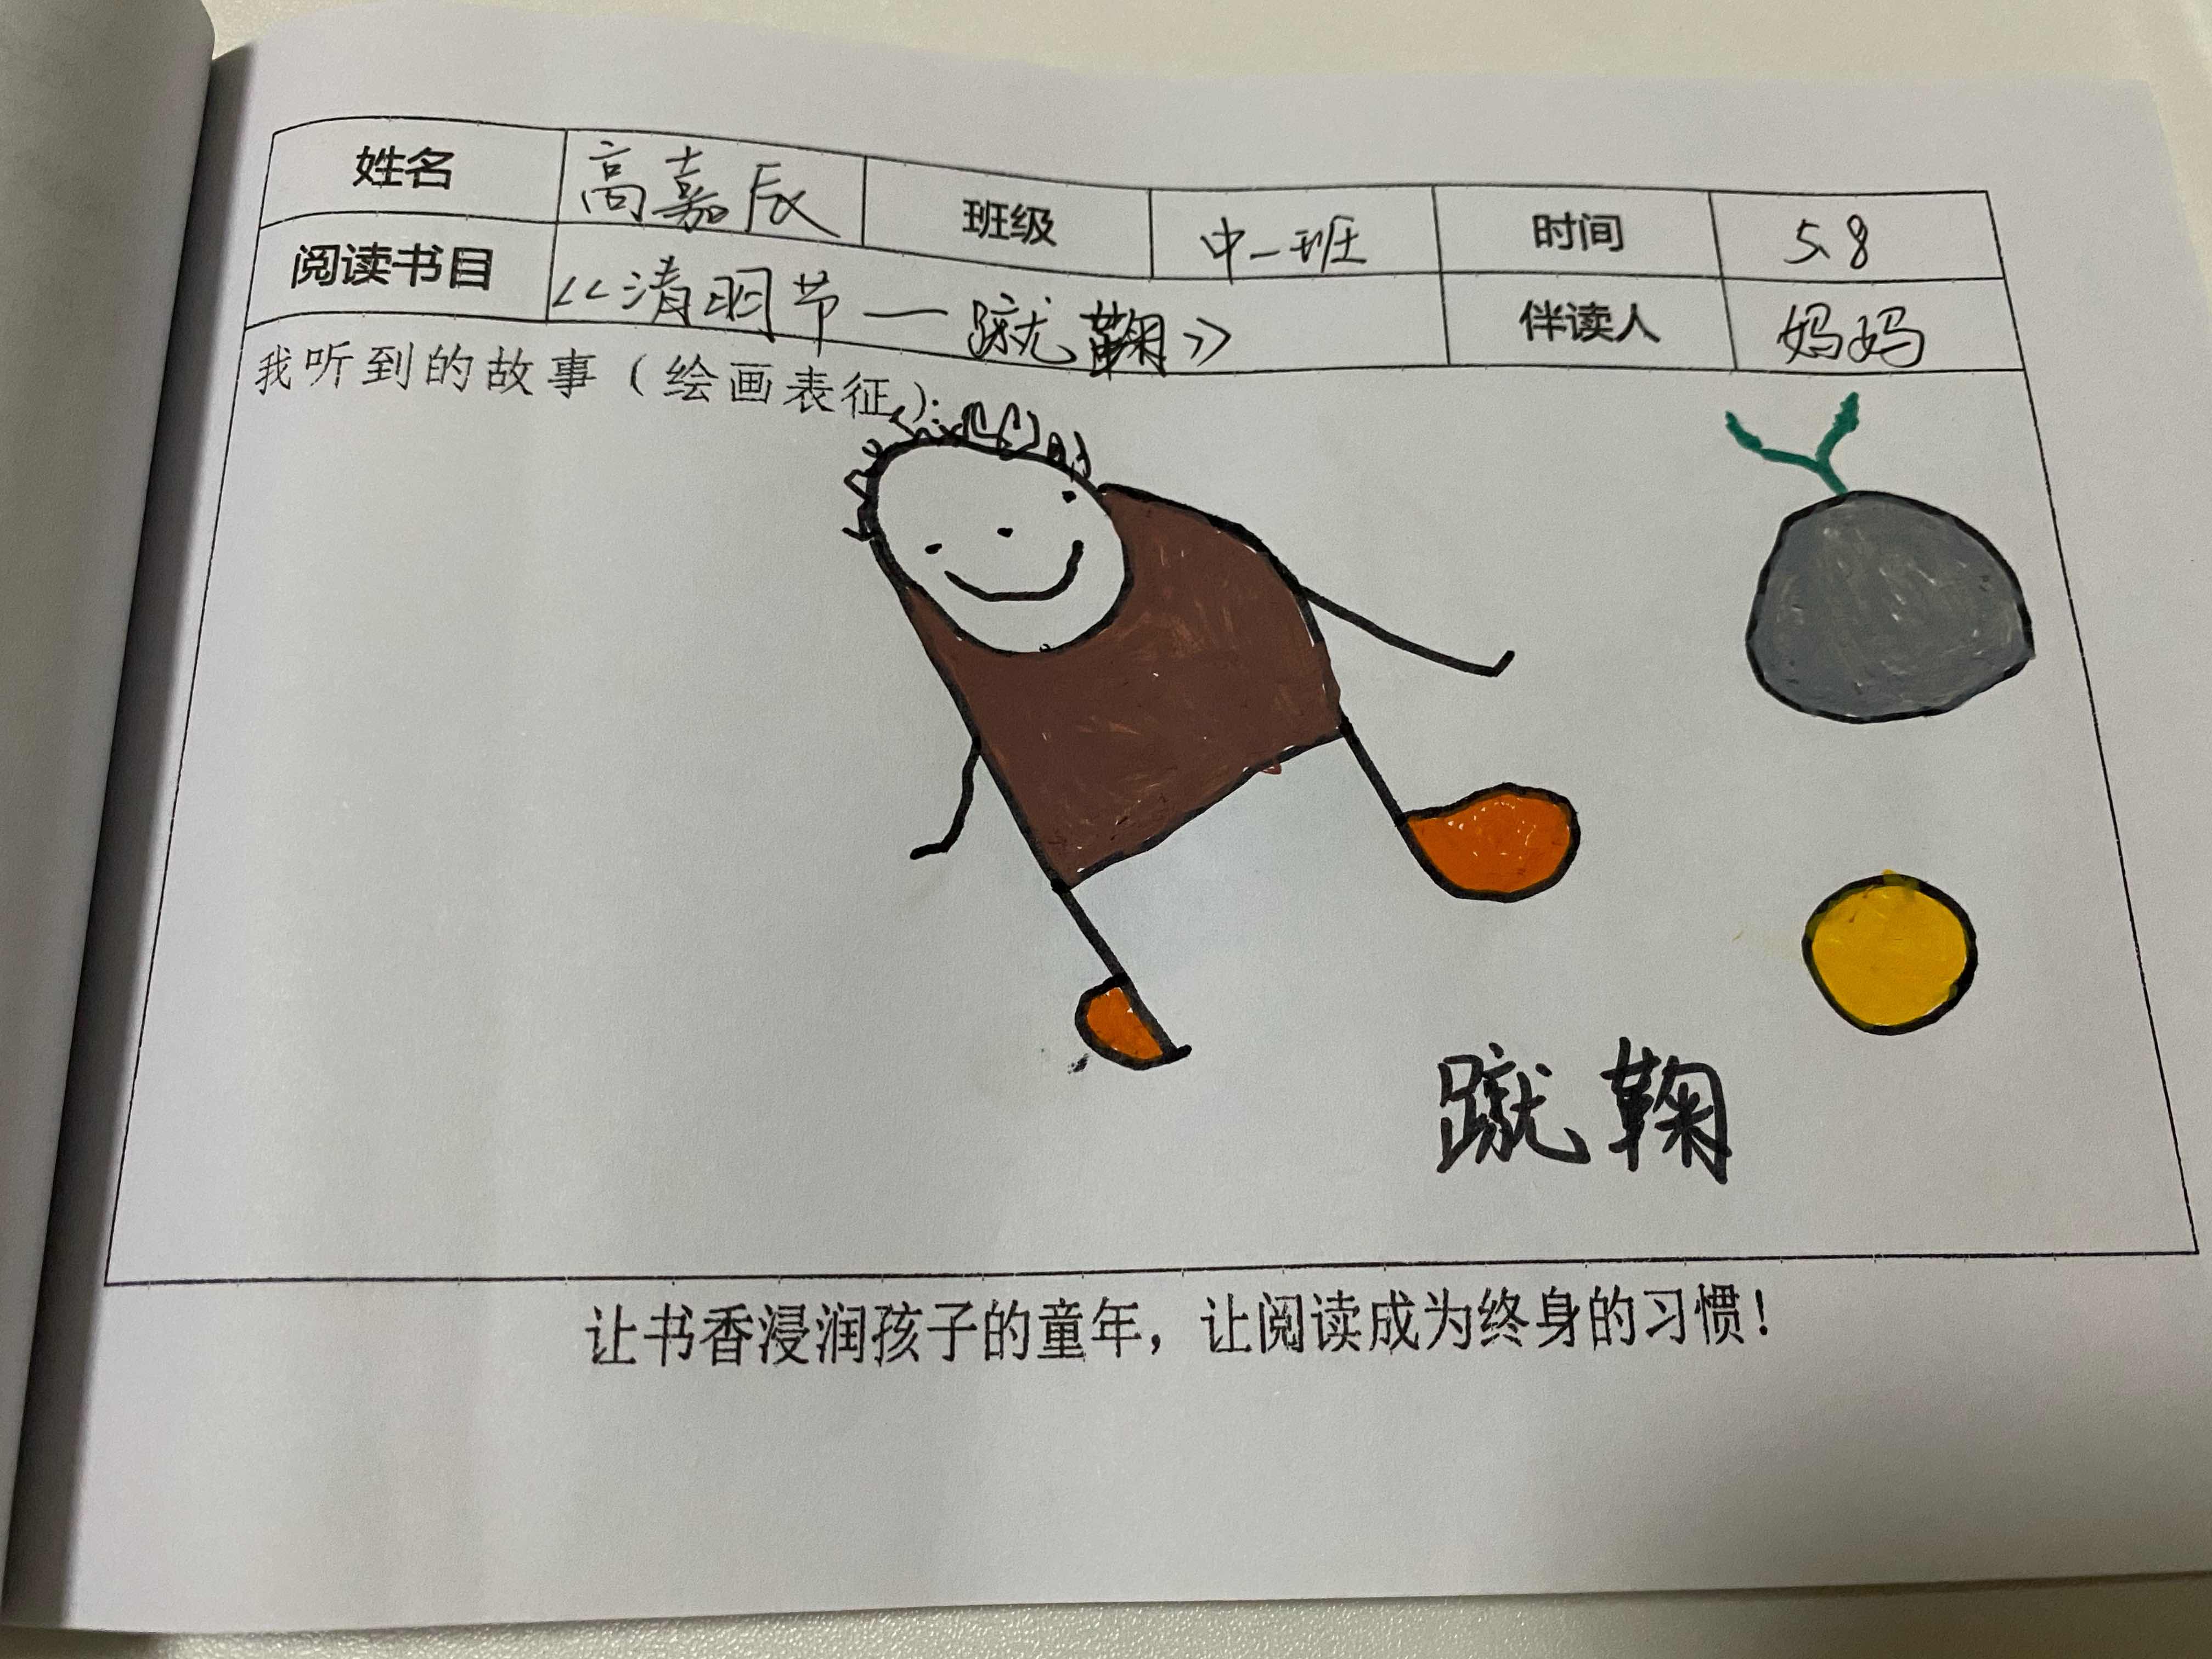 姓名 高嘉辰 班级 中一班 时间 5.8
阅读书目 《清明节—蹴鞠》 伴读人 妈妈
我听到的故事（绘画表征）：
蹴鞠
让书香浸润孩子的童年，让阅读成为终身的习惯！